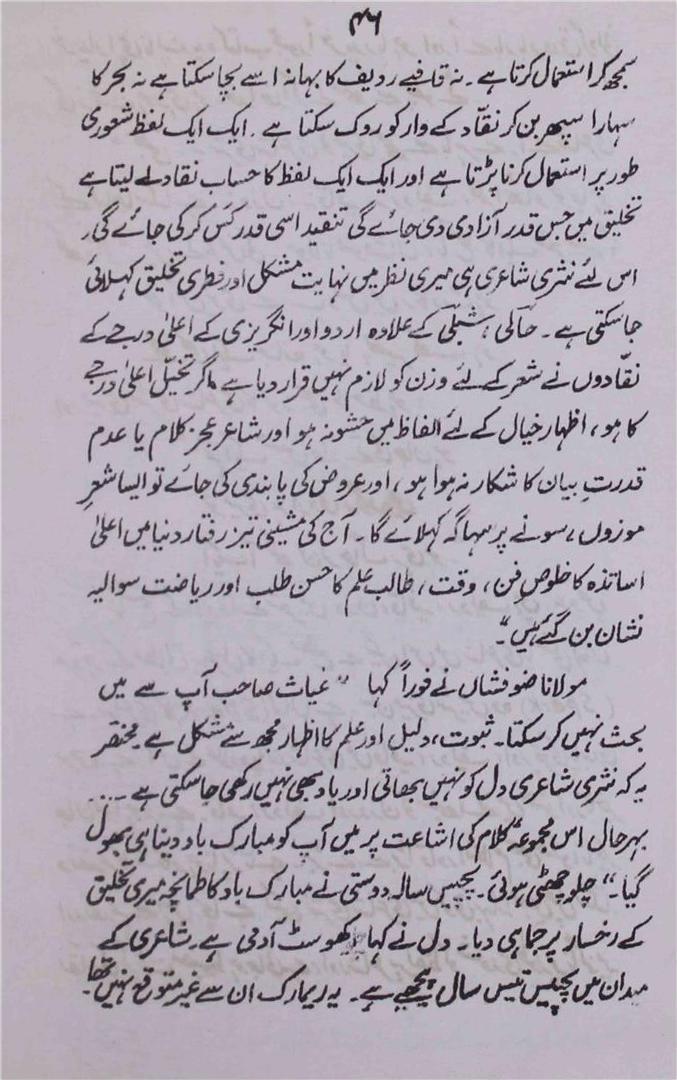 ۴۶
سمجھ کر استعمال کرتا ہے۔ نہ قافیے ردیف کا بہانہ اسے بچا سکتا ہے نہ بحر کا
سہارا سپھر بن کر نقّاد کے وار کو روک سکتا ہے۔ ایک ایک لفظ شعوری
طور پر استعمال کرنا پڑتا ہے اور ایک ایک لفظ کا حساب نقاد لے لیتا ہے
تخلیق میں جس قدر آزادی دی جائے گی تنقید اسی قدر کَس کر کی جائے گی۔
اس لئے نثری شاعری ہی میری نظر میں نہایت مشکل اور فطری تخلیق کہلائی
جا سکتی ہے۔ حاؔلی، شبلؔی کے علاوہ اردو اور انگریزی کے اعلیٰ درجے کے
نقّادوں نے شعر کے لئے وزن کو لازم نہیں قرار دیا ہے مگر تخیّل اعلیٰ درجے
کا ہو، اظہارِ خیال کے لئے الفاظ میں حشو نہ ہو اور شاعر عجزِ کلام یا عدم
قدرتِ بیان کا شکار نہ ہوا ہو، اور عروض کی پابندی کی جائے تو ایسا شعر
موزوں، سونے پر سہاگہ کہلائے گا۔ آج کی مشینی تیز رفتار دنیا میں اعلیٰ
اساتذہ کا خلوصِ فن، وقت، طالب علم کا حسن طلب اور ریاضت سوالیہ
نشان بن گئے ہیں۔"
مولانا ضوفشاں نے فوراً کہا "غیاث صاحب آپ سے میں
بحث نہیں کر سکتا۔ ثبوت، دلیل اور علم کا اظہار مجھ سے مشکل ہے۔ مختصر
یہ کہ نثری شاعری دل کو نہیں بھاتی اور یاد بھی نہیں رکھی جا سکتی ہے ....
بہرحال اس مجموعۂ کلام کی اشاعت پر میں آپ کو مبارک باد دینا ہی بھول
گیا۔" چلو چھٹی ہوئی۔ پچیس سالہ دوستی نے مبارک باد کا طمانچہ میری تخلیق
کے رخسار پر جما ہی دیا۔ دل نے کہا کھوسٹ آدمی ہے۔ شاعری کے
میدان میں پچیس تیس سال پیچھے ہے۔ یہ ریمارک ان سے غیر متوقع نہیں تھا۔